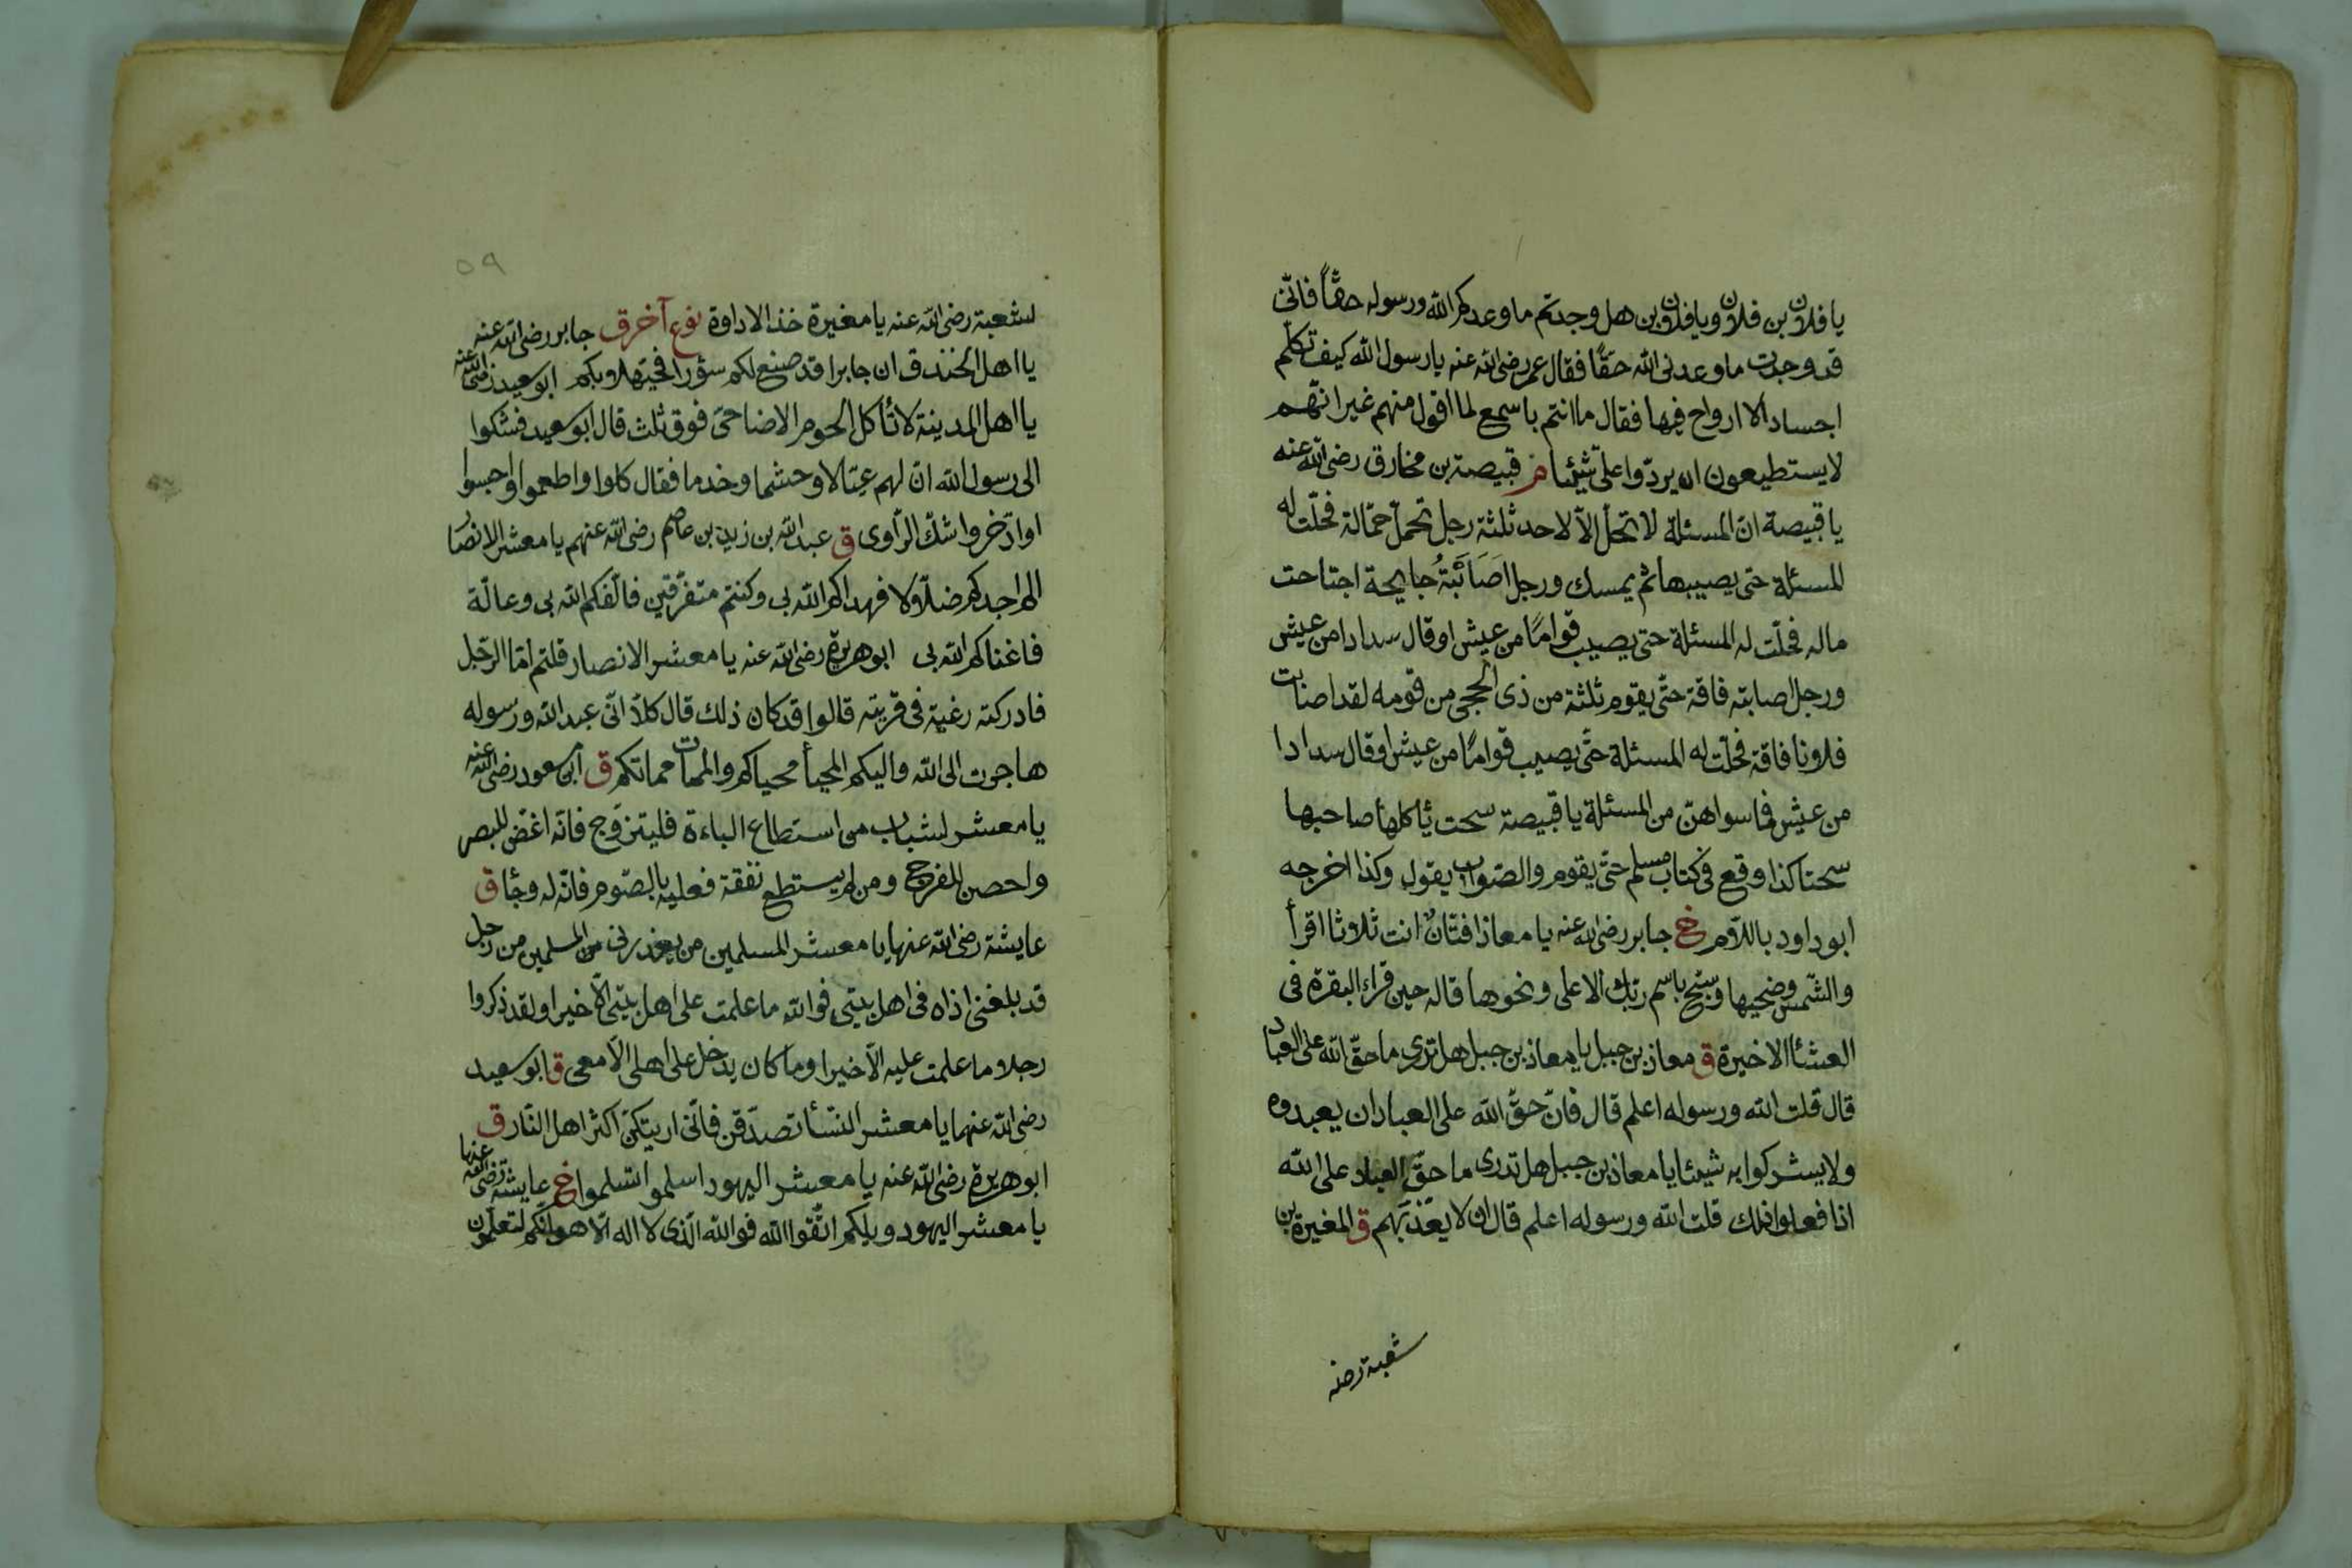 يا فلان بن فلان ويا فلان بن هل وجدتم ما وعدكم الله ورسوله حقّاً فانّى
قد وجدت ما وعدنى الله حقّا فقال عمر رضى الله عنه يا رسول الله كيف تكلّم
اجسادا لا ارواح فيها فقال ما انتم باسمع لما اقول منهم غير انّهم
لا يستطيعون ان يردّوا علىّ شيئا م قبيصة بن مخارق رضى الله عنه
يا قبيصة انّ المسئلة لا تحلّ الّا لاحد ثلثة رجل تحمّل حمّالة فحلّت له
المسئلة حتى يصيبها ثم يمسك ورجل اصَابَتْهُ جايحة اجتاحت
ماله فحلّت له المسئلة حتى يصيب قواماً من عيش او قال سدادا من عيش
ورجل اصابته فاقة حتّى يقوم ثلثة من ذى الحجى من قومه لقد اصابت
فلانا فاقة فحلّت له المسئلة حتّى يصيب قواماً من عيش او قال سدادا
من عيش فما سواهنّ من المسئلة يا قبيصة سحت يأكلها صاحبها
سحتا كذا وقع فى كتاب مسلم حتّى يقوم والصّواب يقول وكذا اخرجه
ابو داود باللّام خ جابر رضى الله عنه يا معاذ افتّانٌ انت ثلاثا اقرأ
والشّمس وضحيها وسبّح باسم ربّك الاعلى ونحوها قاله حين قراء البقرة فى
العشأ الاخيرة ق معاذ بن جبل يا معاذ بن جبل هل تدرى ما حقّ الله على العباد
قال قلت الله ورسوله اعلم قال فانّ حقّ الله على العباد ان يعبدوه
ولا يشركوا به شيئا يا معاذ بن جبل هل تدرى ما حقّ العباد على الله
اذا فعلوا ذلك قلت الله ورسوله اعلم قال ان لا يعذّبهم ق المغيرة بن
شعبة رضه
٥٩
لشعبة رضى الله عنه يا مغيرة خذ الاداوة نوع آخر ق جابر رضى الله عنه
يا اهل الخندق ان جابرا قد صنع لكم سؤرا فحيّهلا وبكم ابو سعيد رضى الله عنه
يا اهل المدينة لا تأكل الحوم الاضاحىّ فوق ثلث قال ابو سعيد فشكوا
الى رسول الله انّ لهم عيالا وحشما وخدما فقال كلوا واطعموا واحبسوا
او ادّخروا شكّ الرّاوى ق عبد الله بن زيد بن عاصم رضى الله عنهم يا معشر الانصا
الم اجدكم ضلّالا فهداكم الله بى وكنتم متفرّقين فالّفكم الله بى وعالّة
فاغناكم الله بى ابو هريرة رضى الله عنه يا معشر الانصار قلتم امّا الرّجل
فادركته رغبة فى قريته قالوا قد كان ذلك قال كلّا انّى عبد الله ورسوله
هاجرت الى الله واليكم المحيأ محياكم والممات مماتكم ق ابن مسعود رضى الله عنه
يا معشر لشباب من استطاع الباءة فليتزوّج فانّه اغضّ للبصر
واحصن للفرج ومن لم يستطع نفقة فعليه بالصّوم فانّه له وجأ ق
عايشة رضى الله عنها يا معشر المسلمين من يعذرنى من المسلمين من رجل
قد بلغنى اذاه فى اهل بيتى فوالله ما علمت على اهل بيتى الّا خيرا ولقد ذكروا
رجلا وما علمت عليه الّا خيرا وما كان يدخل على اهلى الّا معى ق ابو سعيد
رضى الله عنهما يا معشر النّسأ تصدّقن فانّى اريتكنّ اكثر اهل النّار ق
ابو هريرة رضى الله عنه يا معشر اليهود اسلموا تسلموا خ عايشة رضى الله عنها
يا معشر اليهود ويلكم اتّقوا الله فوالله الّذى لا اله الّا هو انّكم لتعلمون